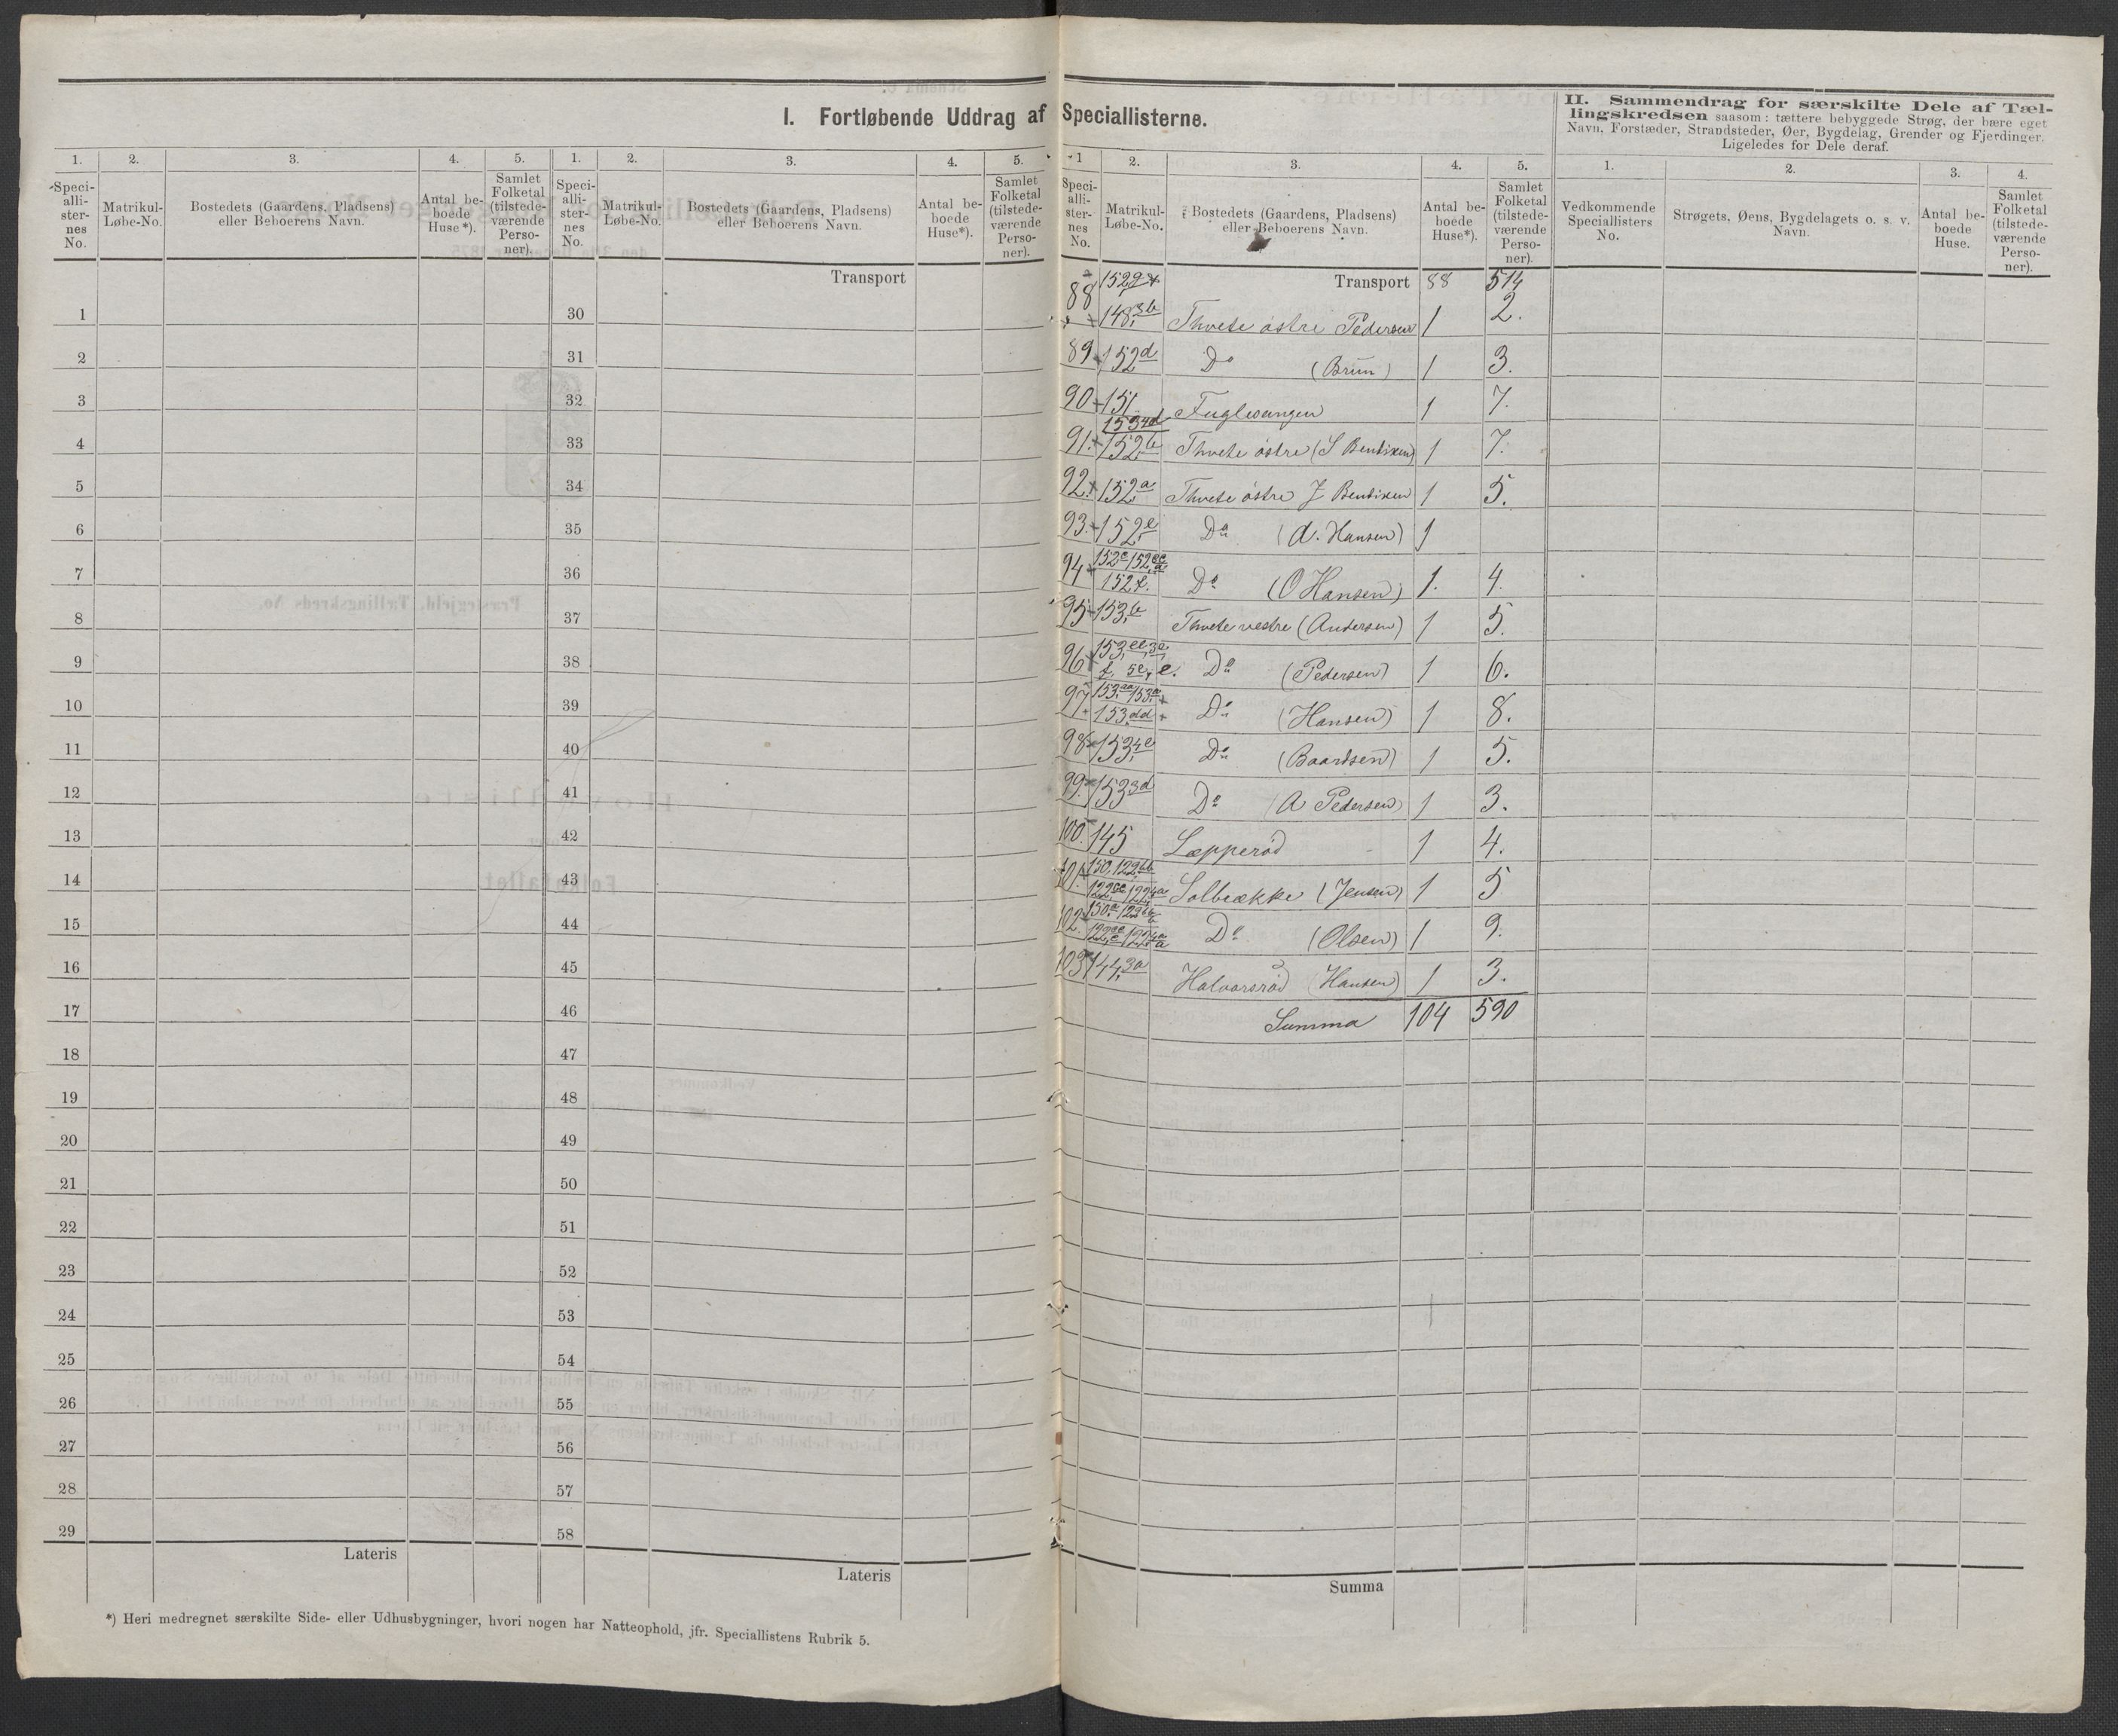 I. Fortløbende Uddrag af Speciallisterne.
II. Sammendrag for særskilte Dele af Tæl-
lingskredsen saasom: tættere bebyggede Strøg, der bære eget
Navn, Forstæder, Strandsteder, Øer, Bygdelag, Grender og Fjerdinger.
Ligeledes for Dele deraf.
1. 2. 3. 4. 5. 1. 2. 3. 4. 5. 1 2. 3. 4. 5. 1. 2. 3. 4.
Speci-
alli-
ster-
nes
No.
Matrikul-
Løbe-No.
Bostedets (Gaardens, Pladsens)
eller Beboerens Navn.
Antal be-
boede
Huse*).
Samlet
Folketal
(tilstede-
værende
Perso-
ner).
Speci-
alli-
ster-
nes
No.
Matrikul-
Løbe-No.
Bostedets (Gaardens, Pladsens)
eller Beboerens Navn.
Antal be-
boede
Huse*).
Samlet
Folketal
(tilstede-
værende
Perso-
ner).
Speci-
alli-
ster-
nes
No.
Matrikul-
Løbe-No.
Bostedets (Gaardens, Pladsens)
eller Beboerens Navn.
Antal be-
boede
Huse*).
Samlet
Folketal
(tilstede-
værende
Perso-
ner).
Vedkommende
Speciallisters
No.
Strøgets, Øens, Bygdelagets o. s. v.
Navn.
Antal be-
boede
Huse.
Samlet
Folketal
(tilstede-
værende
Perso-
ner).
1
2
3
4
5
6
7
8
9
10
11
12
13
14
15
16
17
18
19
20
21
22
23
24
25
26
27
28
29
Lateris
Transport
30
31
32
33
34
35
36
37
38
39
40
41
42
43
44
45
46
47
48
49
50
51
52
53
54
55
56
57
58
Lateris
Transport 88 514
88 148,3b Thvete østre Pedersen 1 2.
89 152d Do (Brun) 1 3.
90 151 Fuglesangen 1 7.
153 4d
91. 152b Thvete østre (S Bentixen) 1 7.
92. 152a Thvete østre J Bentixen 1 5.
93. 152e Do (A. Hansen) 1
94 152f. Do (O Hansen) 1. 4.
95 153,b Thvete vestre (Andersen) 1 5.
96 Do (Pedersen) 1 6.
97 153,dd Do (Hansen) 1 8.
98 153,4e Do (Baardsen) 1 5.
99. 153 3d Do (A Pedersen) 1 3.
100. 145 Lepperød 1 4.
101. 150, 122bb
Solbække (Jensen) 1 5
102. Do (Olsen) 1 9.
103 144,3a Halvorsrød (Hansen) 1 3.
Summa 104 590
Summa
*) Heri medregnet særskilte Side- eller Udhusbygninger, hvori nogen har Natteophold, jfr. Speciallistens Rubrik 5.